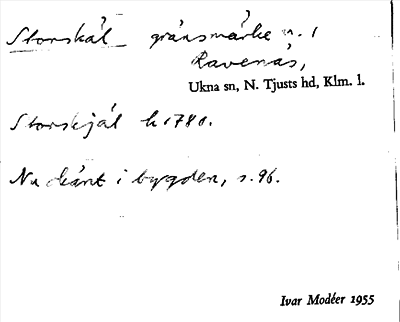 Storskål gränsmärke n. 1
Ravenäs,
Ukna sn, N. Tjusts hd, Klm. l.
Storskjäl k 1780.
Nu okänt i bygden, s. 96.
Ivar Modéer 1955